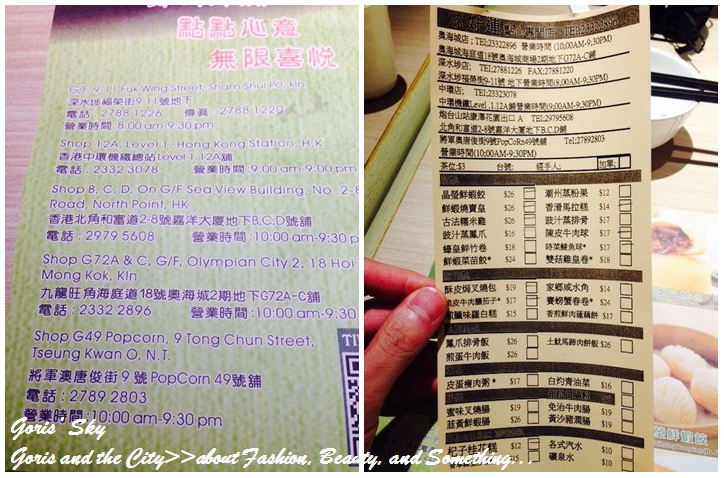 點點心意
無限喜悅
G/F, 9-11 Fuk Wing Street, Sham Shui Po, Kln
深水埗福榮街9-11號地下
電話：2788 1226 傳真：2788 1220
營業時間：8:00 am-9:30 pm
Shop 12A, Level 1, Hong Kong Station, H.K
香港中環機鐵總站Level 1,12A舖
電話：2332 3078 營業時間：9:00 am-9:00 pm
Shop B, C, D, On G/F Sea View Building, No. 2-8
Road, North Point, HK
香港北角和富道2-8號嘉洋大廈地下B,C,D號舖
電話：2979 5608 營業時間：10:00 am-9:30 pm
Shop G72A & C, G/F, Olympian City 2, 18 Hoi
Mong Kok, Kln
九龍旺角海庭道18號奧海城2期地下G72A-C舖
電話：2332 2896 營業時間：10:00 am-9:30
Shop G49 Popcorn, 9 Tong Chun Street,
Tseung Kwan O, N.T.
將軍澳唐俊街9號PopCorn 49號舖
電話：2789 2803
營業時間：10:00 am-9:30 pm
Goris Sky
Goris and the City>>about Fashion, Beauty, and Something...
添好運點心專門店 TEL:23322896
奧海城店；TEL:23322896 營業時間 (10:00AM-9:30PM)
奧海城海庭道18號奧海城商場2期地下G72A-C舖
深水埗店；TEL:27881226 FAX:27881220
深水埗福榮街9-11號 地下營業時間(8:00AM-9:30PM)
中環店；TEL:23323078
中環機鐵Level 1,12A舖營業時間(9:00AM-9:30PM)
炮台山站康澤花園出口 A TEL:29795608
北角和富道2-8號嘉洋大廈地下B.C.D舖
將軍澳唐俊街9號PopCorn49號舖 Tel:27892803
營業時間(10:00AM-9:30PM)
茶位:$3 台號: 經手人: 加單:
晶瑩鮮蝦餃 $26 潮州蒸粉果 $12
鮮蝦燒賣皇 $26 香滑馬拉糕 $14
古法糯米雞 $26 豉汁蒸排骨 $17
豉汁蒸鳳爪 $16 陳皮牛肉球 $17
蠔皇鮮竹卷 $18 時菜鯪魚球* $17
鮮蝦菜苗餃* $24 雙菇雞皇卷* $18
酥皮焗叉燒包 $19 家鄉咸水角 $14
$17 賽螃蟹春卷* $20
煎臘味蘿白糕 $15 香煎鮮肉蓮藕餅 $17
鳳爪排骨飯 $26 土魷馬蹄肉餅飯 $26
煎蛋牛肉飯 $26
皮蛋瘦肉粥* $17 白灼青油菜 $16
蜜味叉燒腸 $19 免治牛肉腸 $19
韮黃鮮蝦腸 $26 黃沙豬潤腸 $19
杞子桂花糕 $12 各式汽水
礦泉水
瑩鮮蝦餃